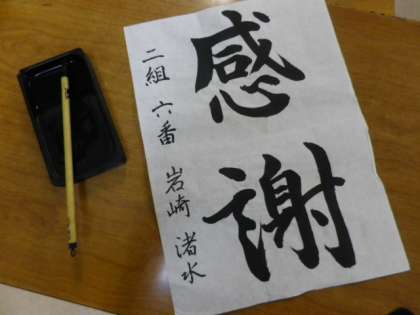 感謝
二組 六番 岩崎 渚水